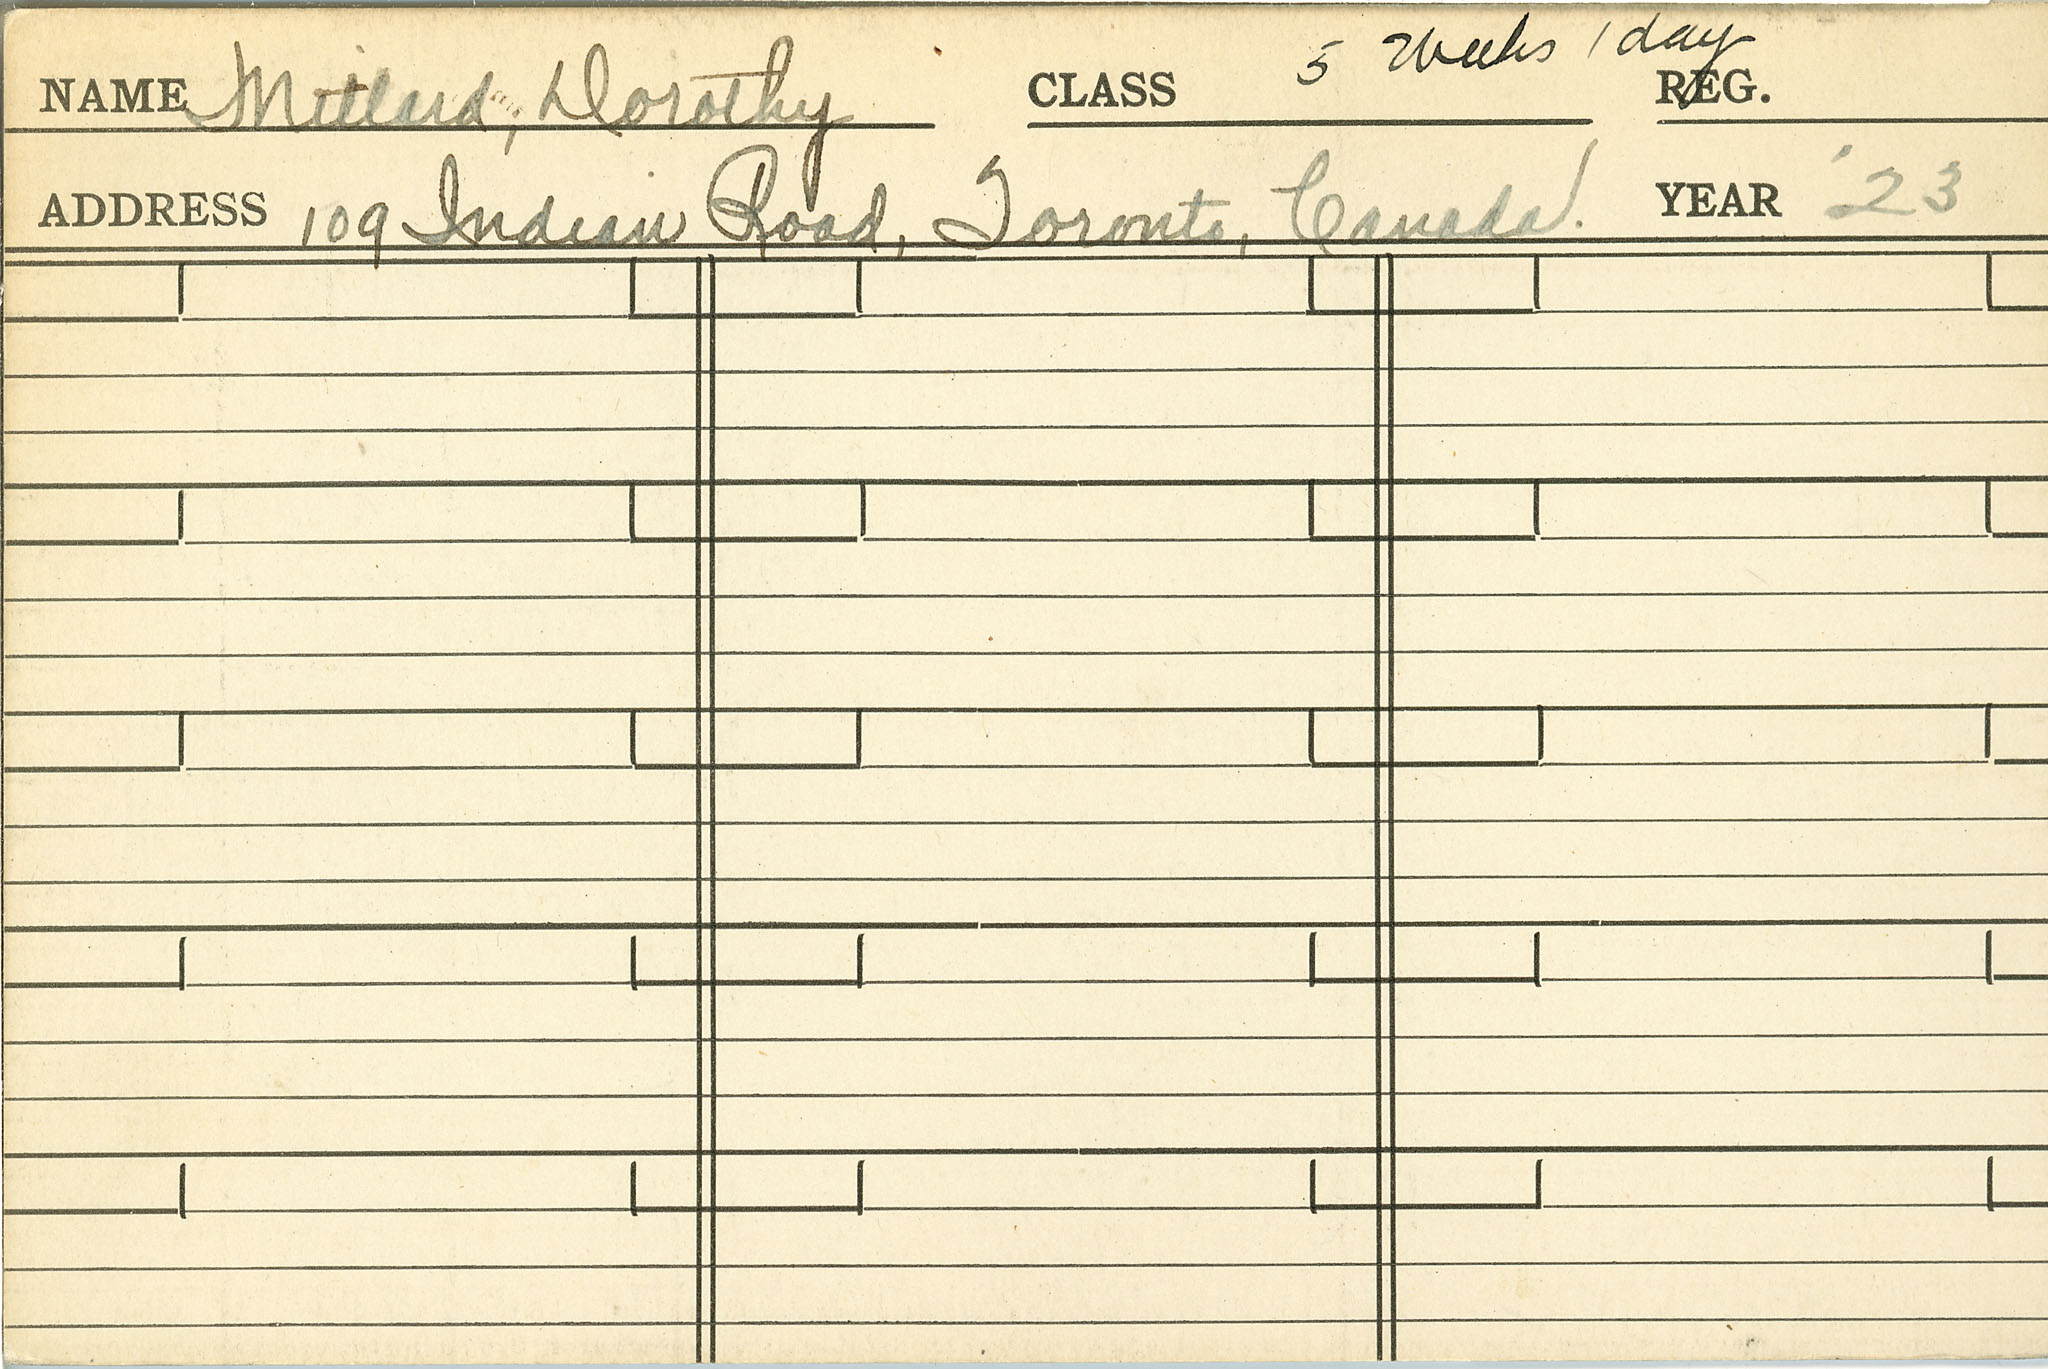 NAME Millard, Dorothy CLASS 5 Weeks 1 day REG.
ADDRESS 109 Indian Road, Toronto, Canada. YEAR '23